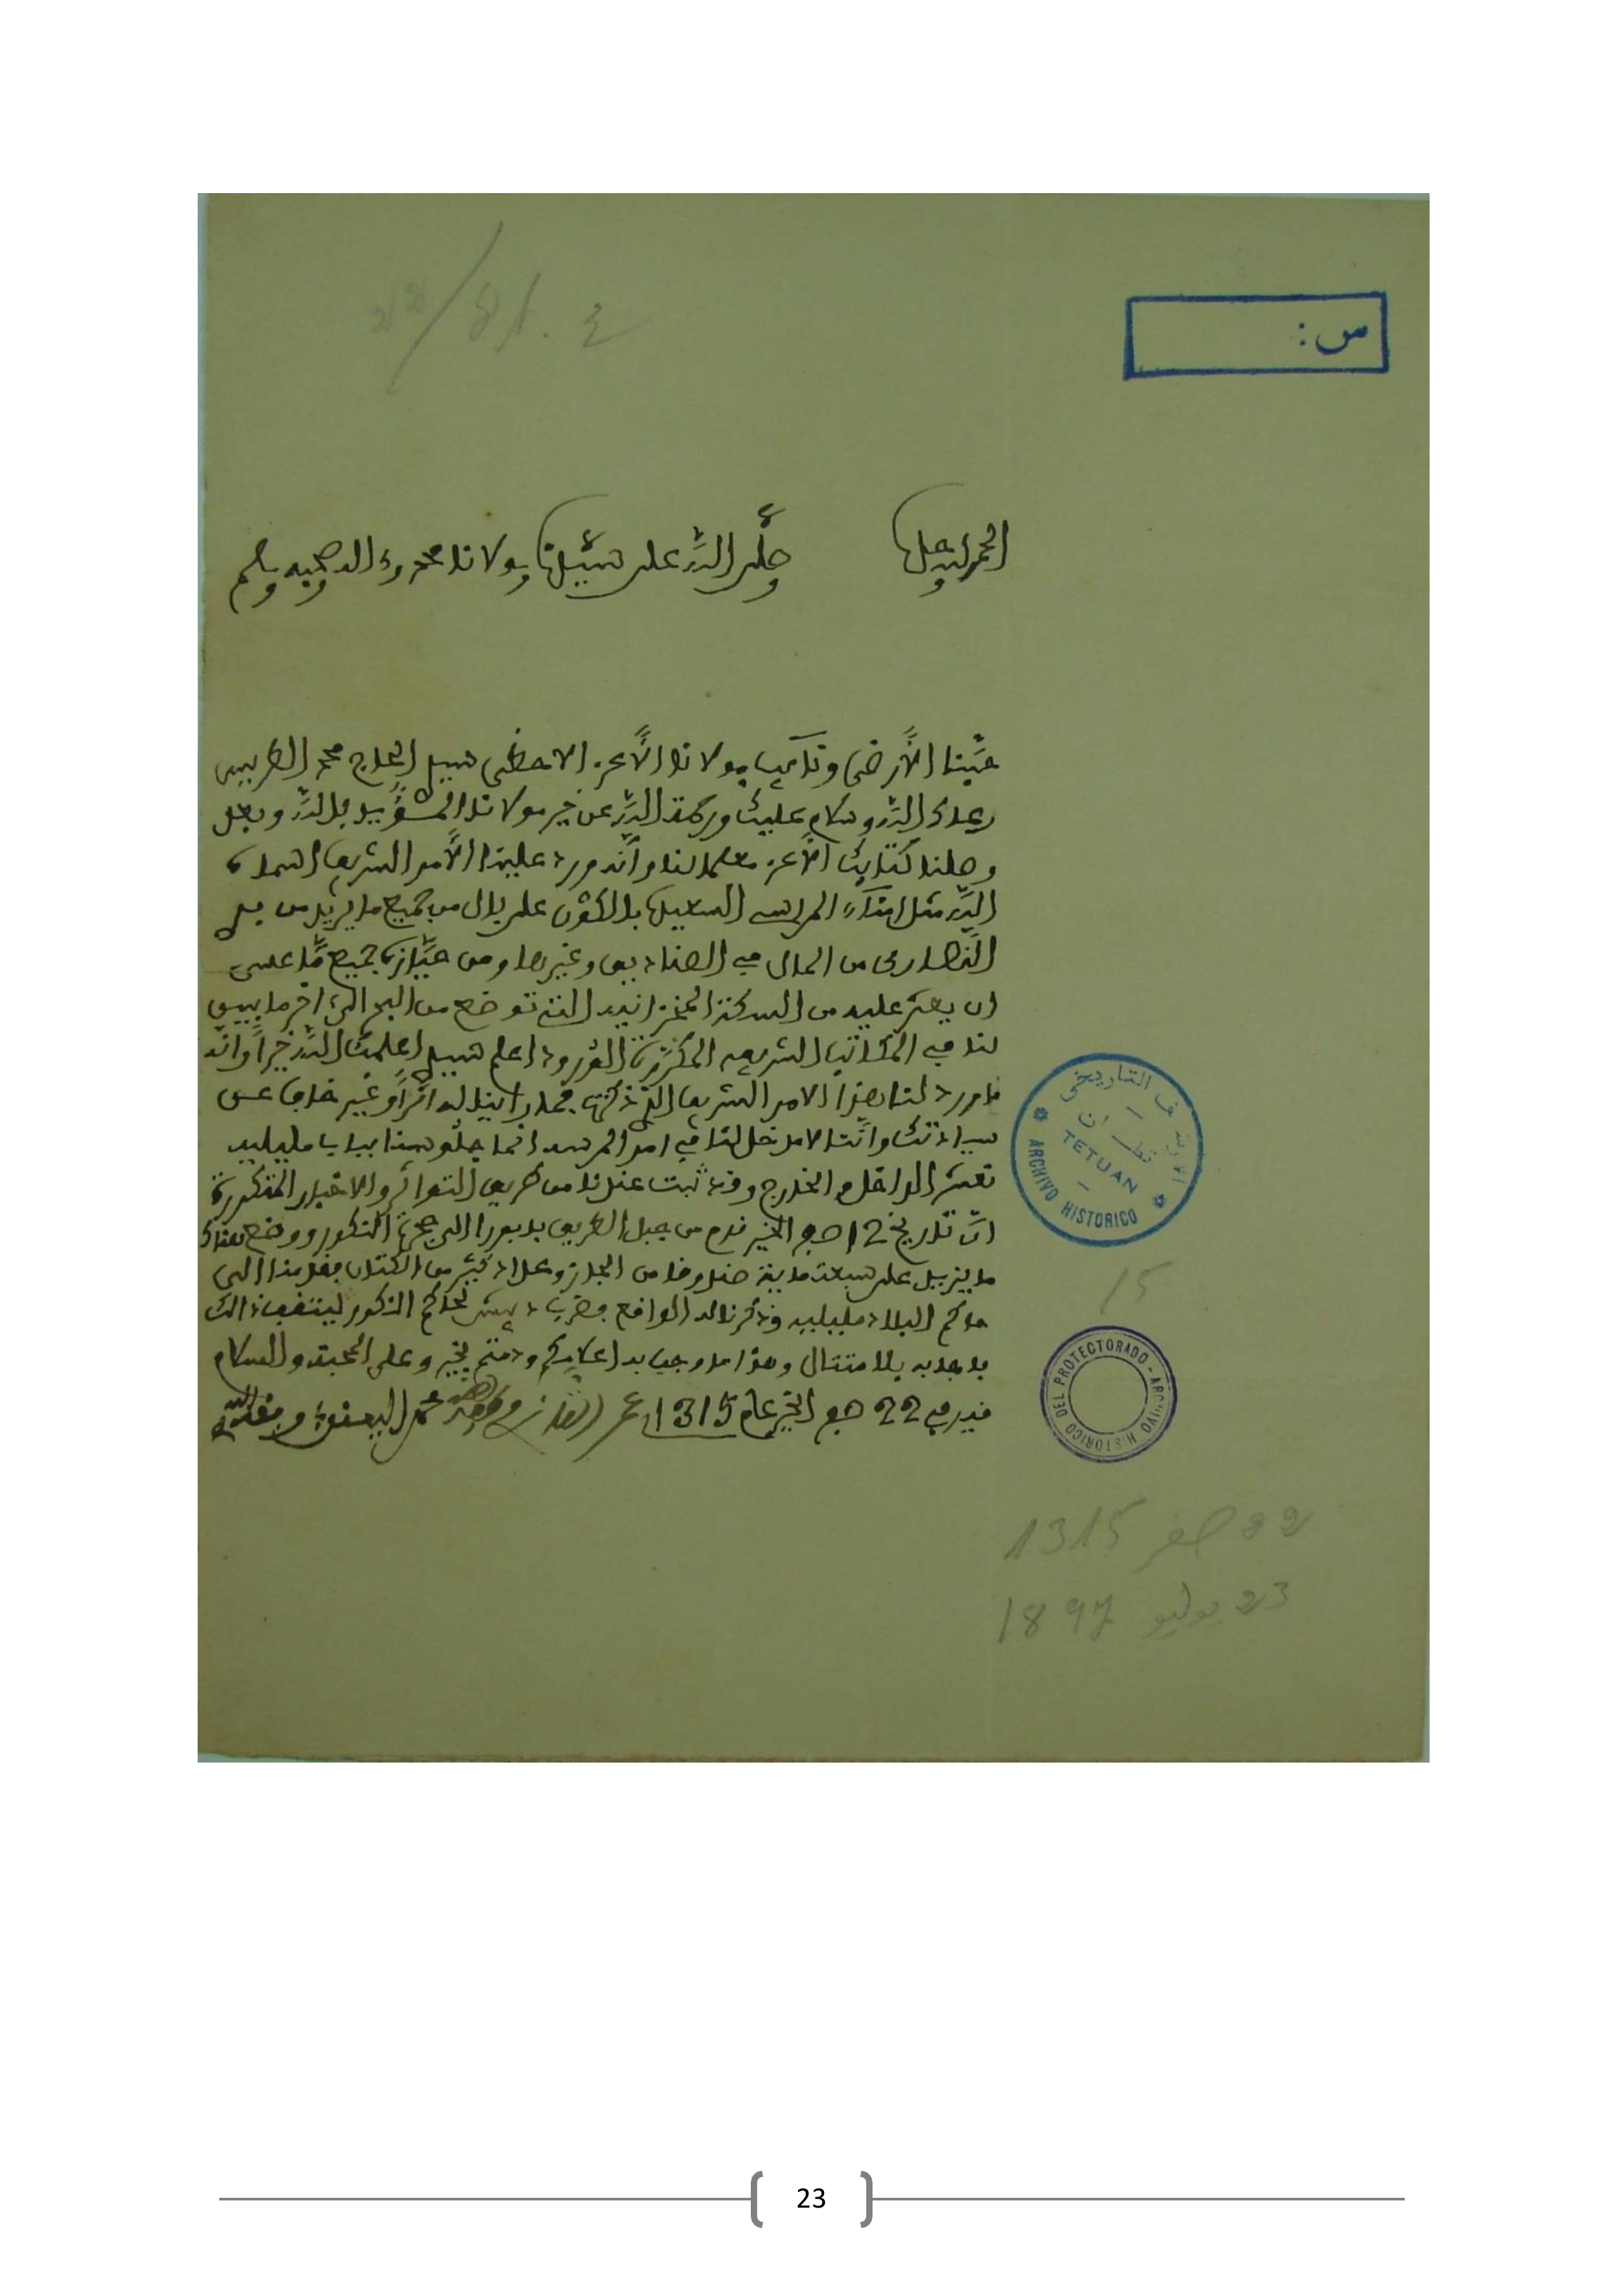 22/81 . ع
س :
الحمد لله وحده
وصلى الله على سيدنا ومولانا محمد وءاله وصحبه وسلم
محبنا الأرضى ونائب مولانا الأعز الاحظى سيدي الحاج محمد الطريس
رعاك الله وسلام عليك ورحمة الله عن خير مولانا المؤيد بالله وبعد
وصلنا كتابك الأعز معلما لنا وأنه ورد عليك الأمر الشريف اسماه
الله مثل امناء المراسي السعيدة بالوقوف على بال من جميع ما يريد من بلد
النصارى من المال في الصناديق وغيرها ومن حيازة جميع ما عسى
ان يعثر عليه من السكة المخزانية التي توضع من البحر الى اخر ما بين
لنا في المكاتيب الشريفة المكررة الورود اعلم سيدي اعلمك الله خيرا وانه
ما ورد لنا هذا الامر الشريف الذي ذكرت فما راينا له اثرا وغير خاف عن
سيادتك وأننا لا مدخل لنا في امر المرسى انما جلوسنا بباب مليلية
نعشر الداخل والخارج وقد ثبت عندنا من طريق التواتر والاخبار المتكررة
ان تاريخ 12 صفر الخير قدم من جبل الطريق بابور الى حجرة النكور ووضع هناك
ما يزيد على سبعة مائة صندوقا من المجاز وعدد كثير من الكتان فقدمنا الى
حاكم البلاد مليلية وذكرنا له الواقع فضرب لحاكم النكور ليثقف ذالك
فاجابه بالامتثال وهذا ما وجب به اعلامكم ودمتم بخير وعلى المحبة والسلام
قيد في 22 صفر الخير عام 1315
الارشيف التاريخي
تطوان
TETUAN
ARCHIVO HISTORICO
15
ARCHIVO HISTORICO DEL PROTECTORADO
22 صفر 1315
23 يوليو 1897
23